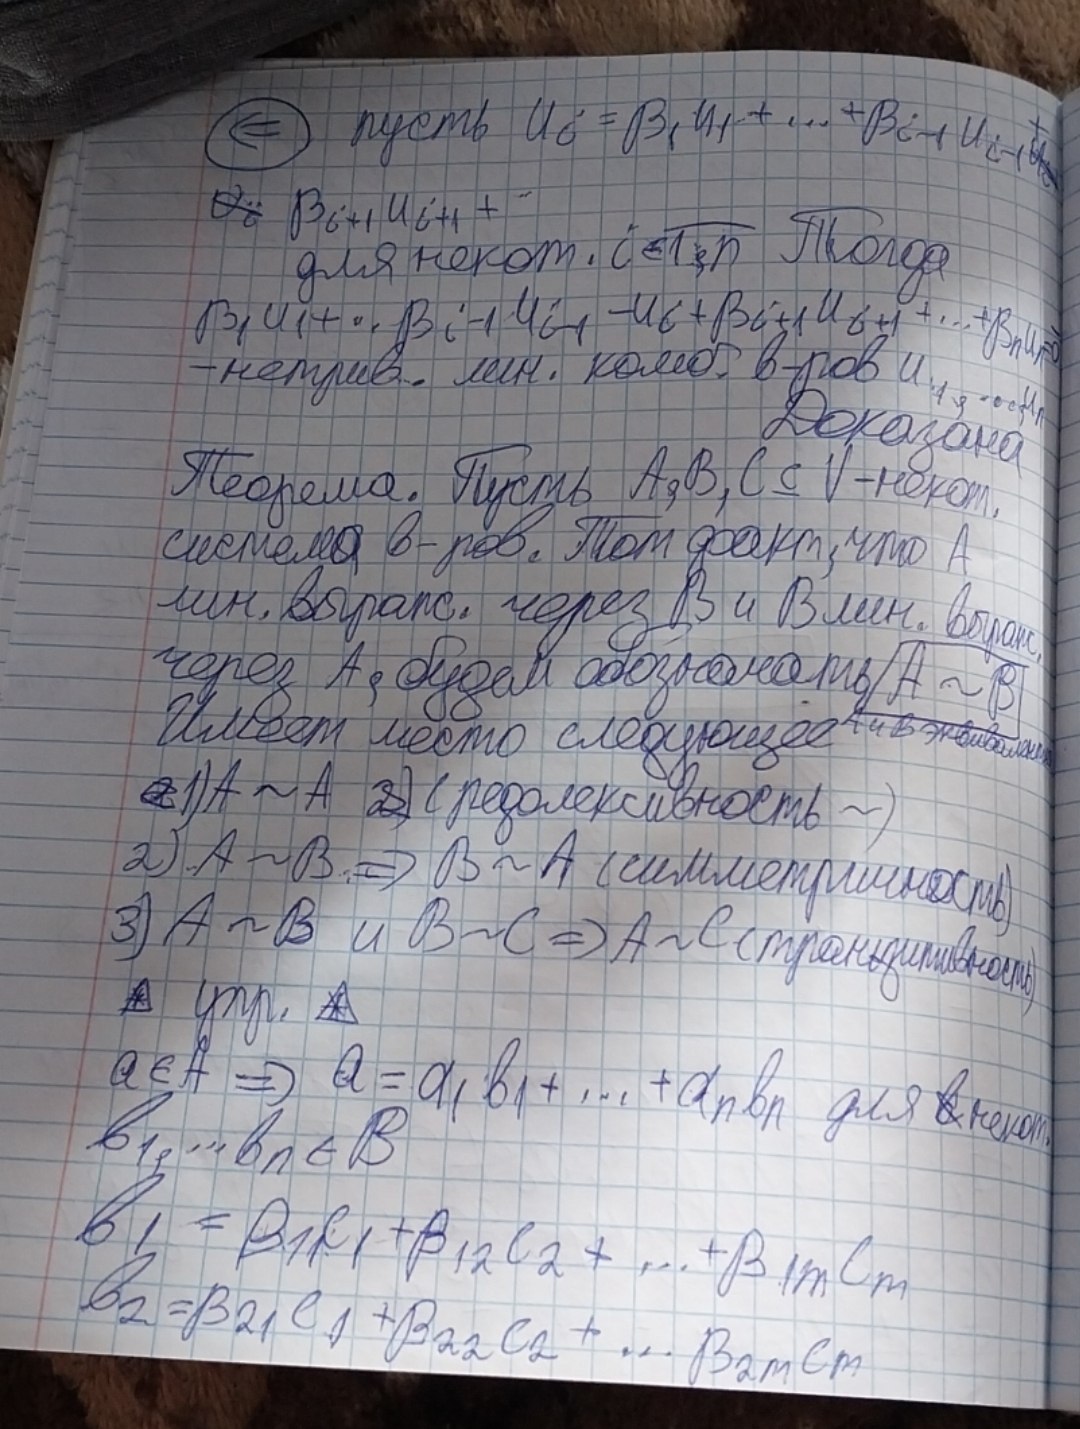 ⇐ пусть u_i = β₁u₁ + ... + β_{i-1} u_{i-1} +
β_{i+1} u_{i+1} + ...
для некот. i ∈ 1,n Тогда
β₁u₁ + ... β_{i-1} u_{i-1} - u_i + β_{i+1} u_{i+1} + ... + β_n u_n = 0
- нетрив. лин. комб. в-ров u₁, ..., u_n
Доказана
Теорема. Пусть A, B, C ⊆ V - некот.
система в-ров. Тот факт, что A
лин. выраж. через B и B лин. выраж.
через A, будем обозначать A ~ B
Имеет место следующее A и B эквивалентн
1) A ~ A (рефлексивность ~)
2) A ~ B ⇒ B ~ A (симметричность)
3) A ~ B и B ~ C ⇒ A ~ C (транзитивность)
▲ упр. ▲
a ∈ A ⇒ a = α₁b₁ + ... + α_n b_n для некот.
b₁, ... b_n ∈ B
b₁ = β₁₁c₁ + β₁₂c₂ + ... + β_{1m}c_m
b₂ = β₂₁c₁ + β₂₂c₂ + ... β_{2m}c_m